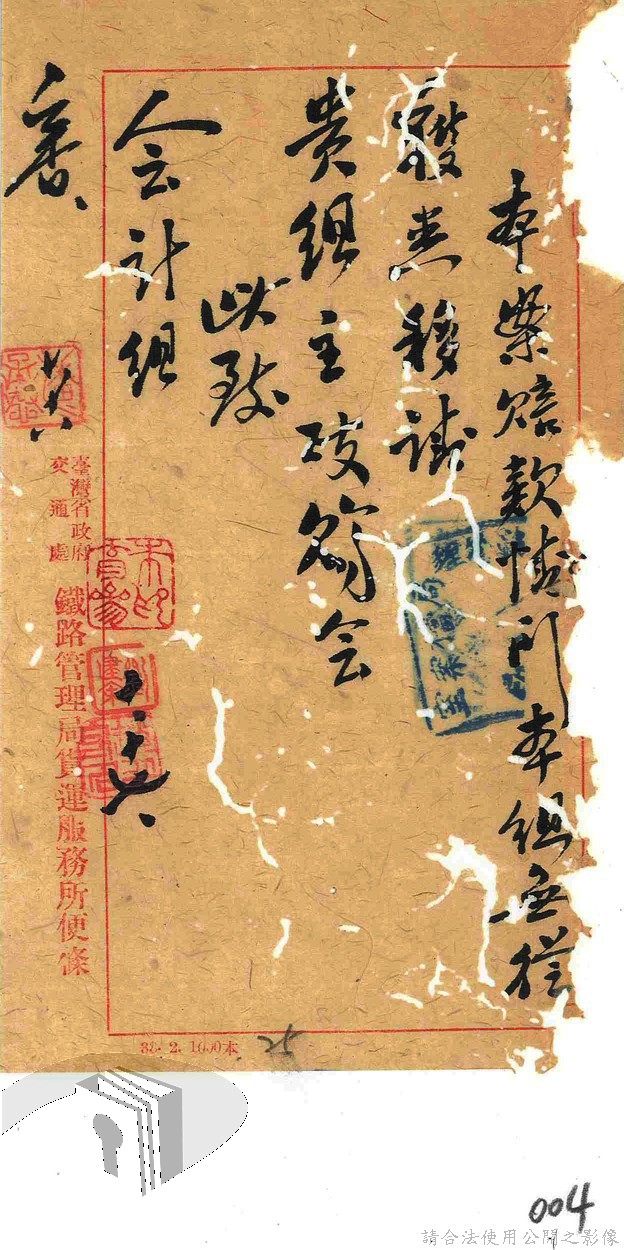 本案賠款情形本組無從
獲悉移請
貴組主政簽会
此致
会計組
臺灣省政府
交通處
鐵路管理局貨運服務所便條
38. 2. 1000本
25
004
請合法使用公開之影像